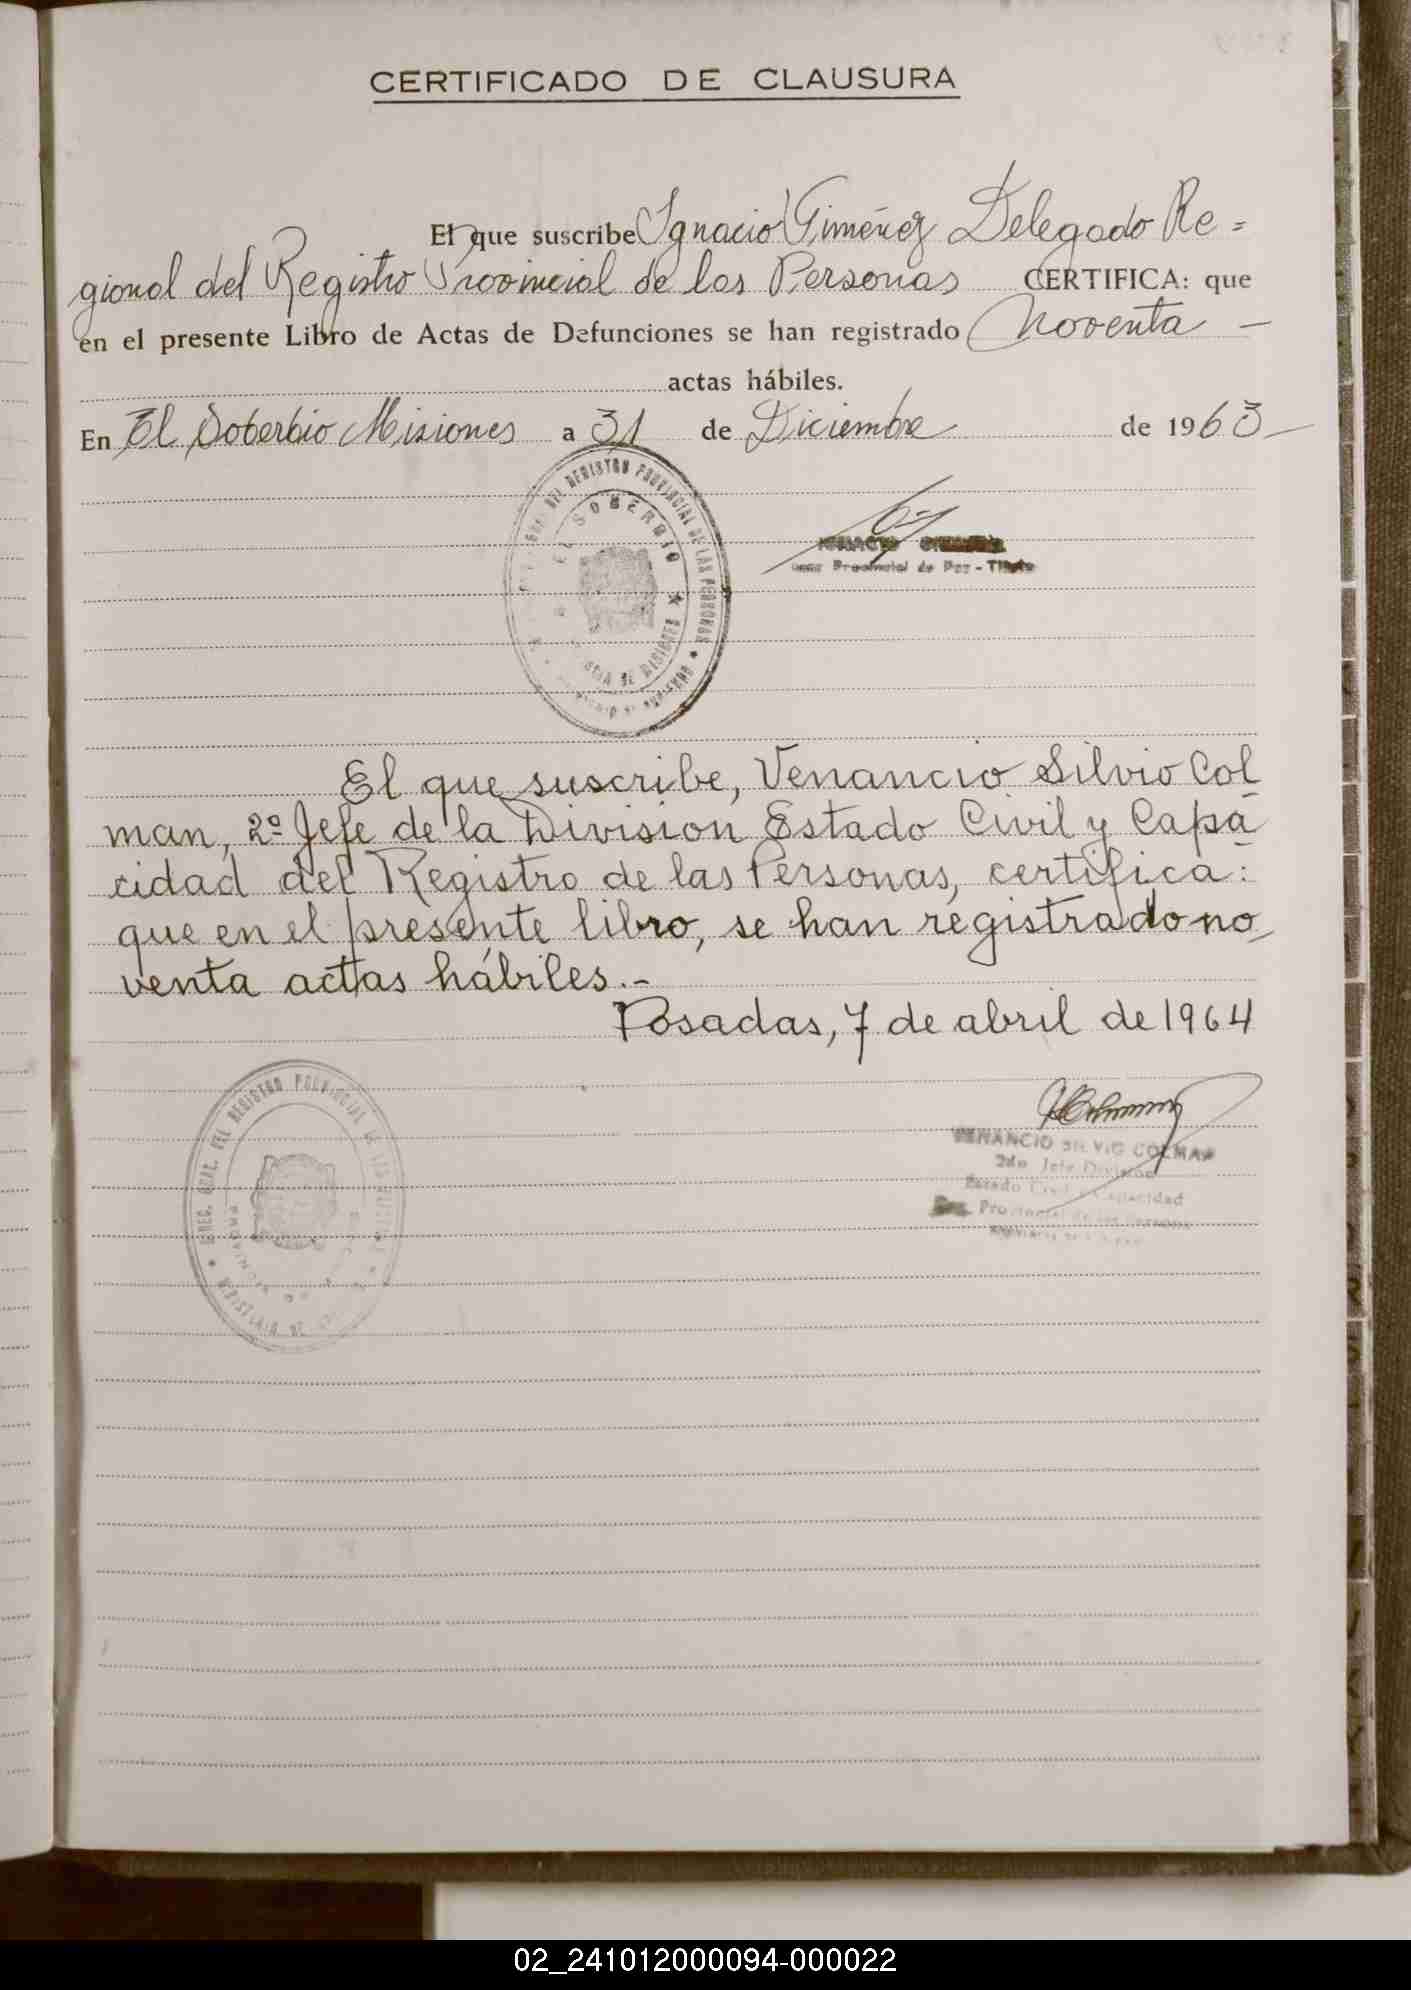 CERTIFICADO DE CLAUSURA
El que suscribe Ignacio Giménez Delegado Re=
gional del Registro Provincial de las Personas CERTIFICA: que
en el presente Libro de Actas de Defunciones se han registrado Noventa —
actas hábiles.
En El Soberbio Misiones a 31 de Diciembre de 1963—
DEL REGISTRO PROVINCIAL DE LAS PERSONAS
EL SOBERBIO
DE MISIONES
IGNACIO GIMENEZ
Provincial de Paz - Titular
El que suscribe, Venancio Silvio Col-
man, 2º Jefe de la Division Estado Civil y Capa-
cidad del Registro de las Personas, certifica:
que en el presente libro, se han registrado no-
venta actas hábiles.-
Posadas, 7 de abril de 1964
VENANCIO SILVIO COLMAN
2do Jefe Division
Estado Civil y Capacidad
Reg. Provincial de las Personas
DIREC. GRAL. DEL REGISTRO PROVINCIAL DE LAS
02_241012000094-000022